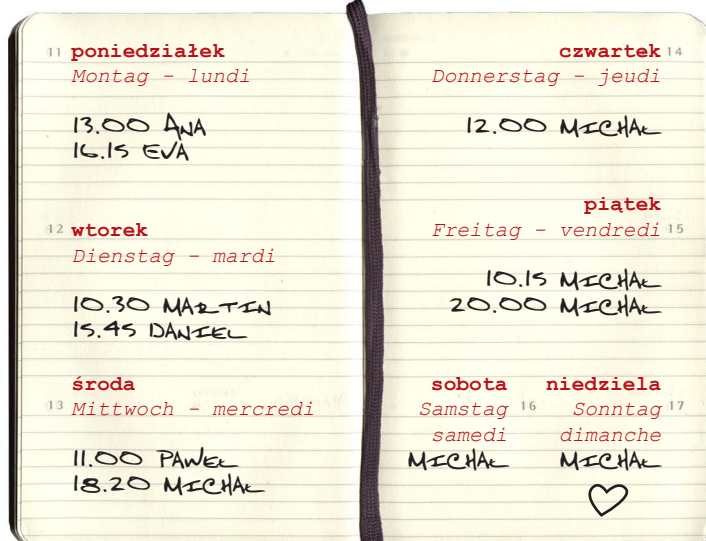 11 poniedziałek
Montag - lundi
13.00 ANA
16.15 EVA
12 wtorek
Dienstag - mardi
10.30 MARTIN
15.45 DANIEL
środa
13 Mittwoch - mercredi
11.00 PAWEŁ
18.20 MICHAŁ
czwartek 14
Donnerstag - jeudi
12.00 MICHAŁ
piątek
Freitag - vendredi 15
10.15 MICHAŁ
20.00 MICHAŁ
sobota
Samstag 16
samedi
MICHAŁ
niedziela
Sonntag 17
dimanche
MICHAŁ